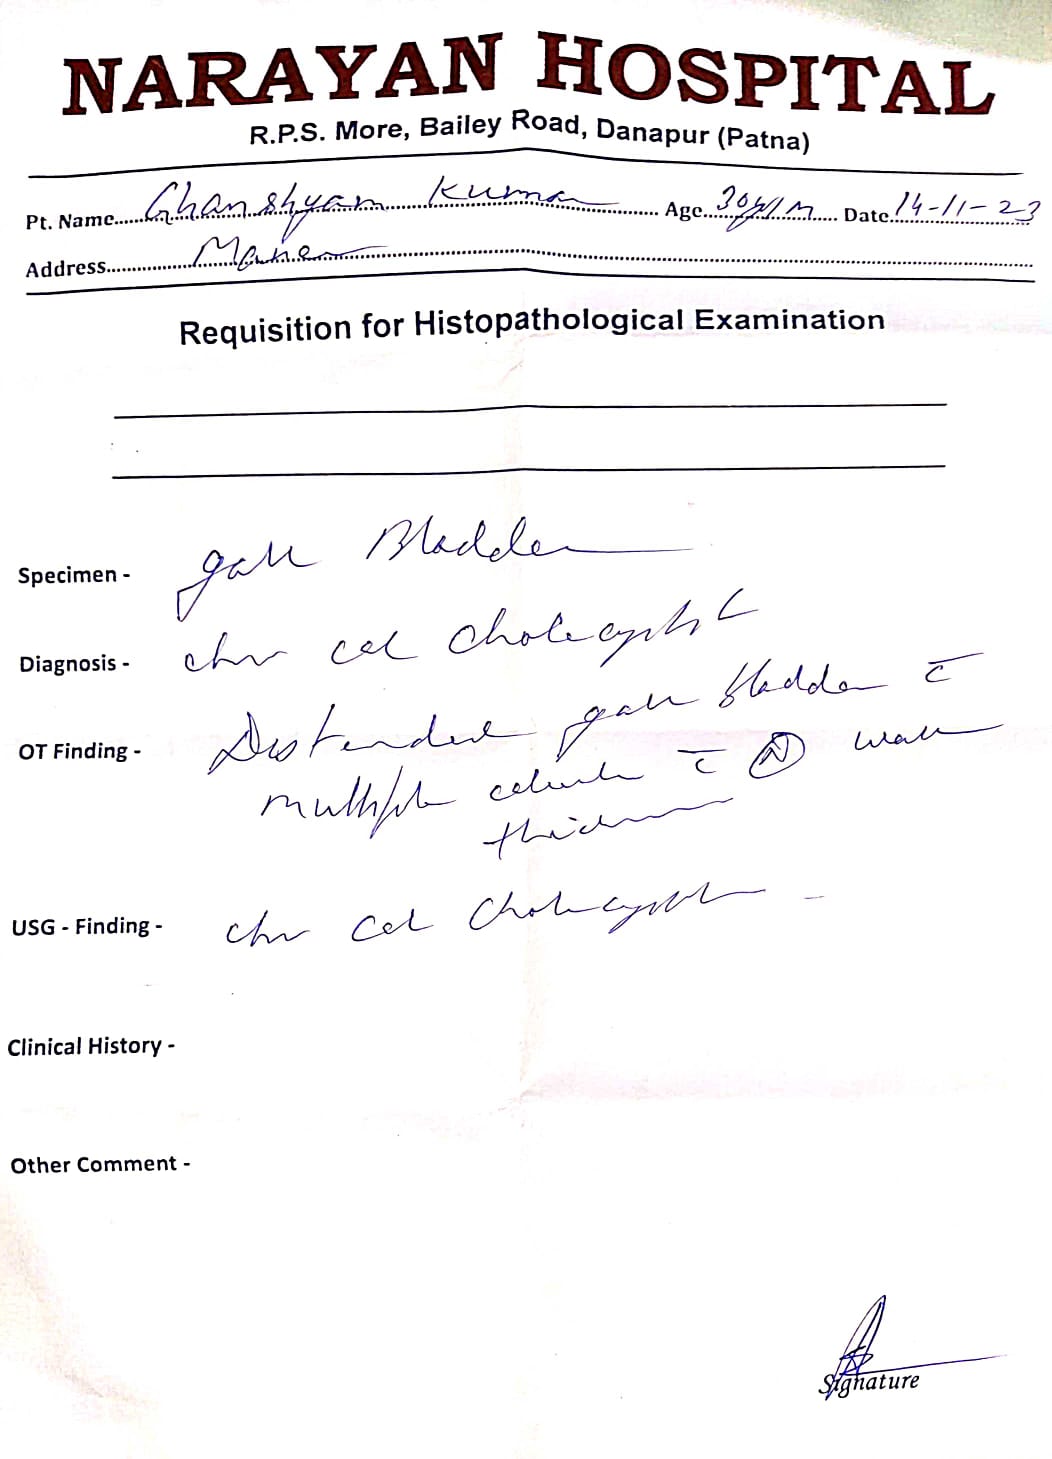 NARAYAN HOSPITAL
R.P.S. More, Bailey Road, Danapur (Patna)
Pt. Name Ghanshyam Kumar Age 30y/M Date 14-11-23
Address Maner
Requisition for Histopathological Examination
Specimen - gall Bladder
Diagnosis - chr cal cholecystit
OT Finding - Distended gall bladder c̄
multiple calculi c̄ Ⓝ wall
thickness
USG - Finding - chr Cal Cholecystit -
Clinical History -
Other Comment -
Signature